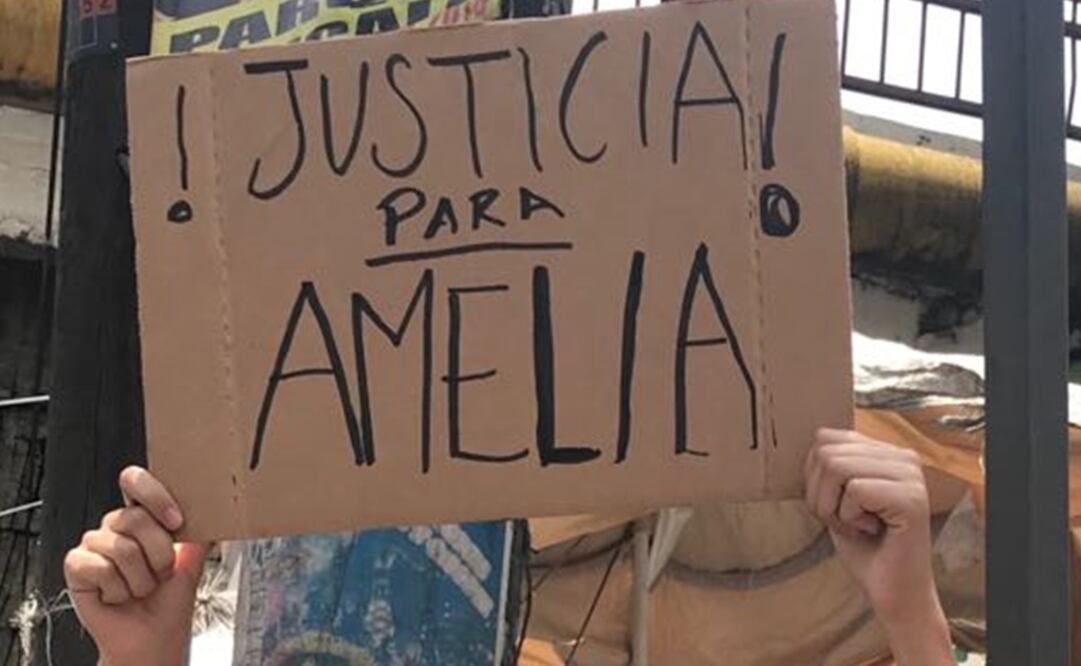 ! JUSTICIA !
PARA
AMELIA